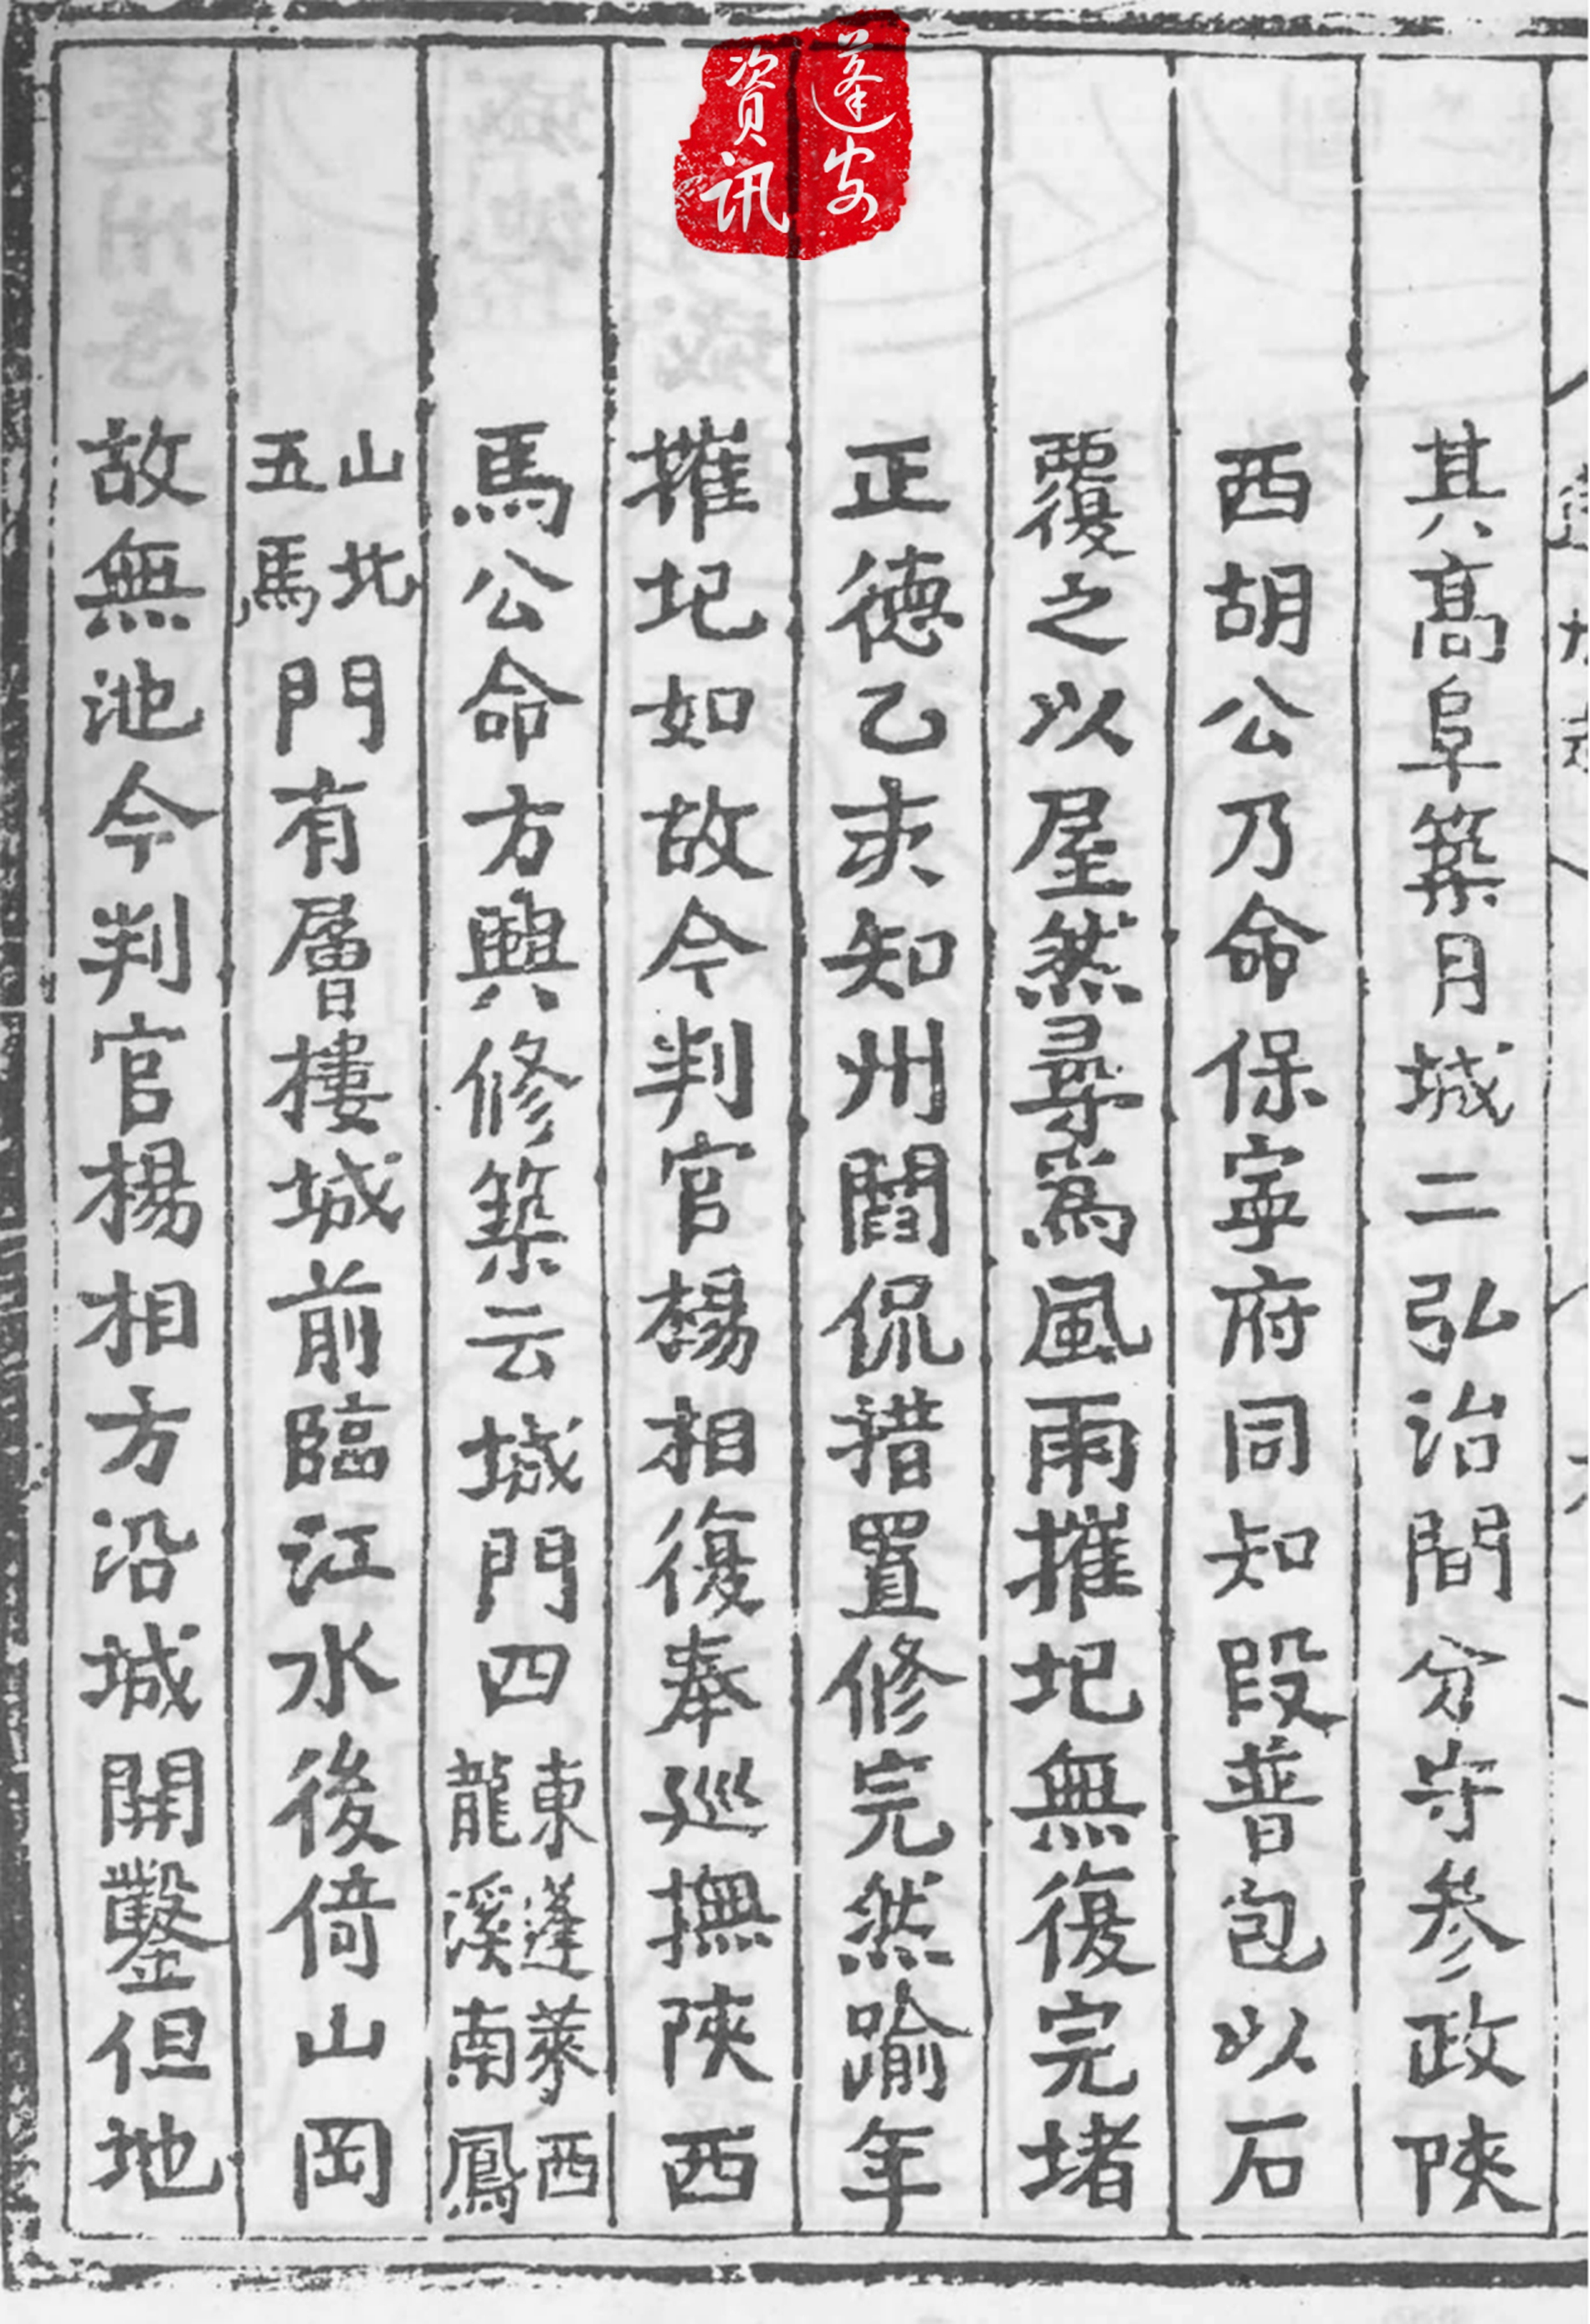 蓬安
資訊
其髙阜築月城二弘治間分守參政陝
西胡公乃命保寧府同知段普包以石
覆之以屋然尋爲風雨摧圮無復完堵
正德乙亥知州閻侃措置修完然踰年
摧圮如故今判官楊相復奉巡撫陝西
馬公命方興修築云城門四東蓬萊西龍溪南鳳
山北五馬門有層樓城前臨江水後倚山岡
故無池今判官楊相方沿城開鑿但地